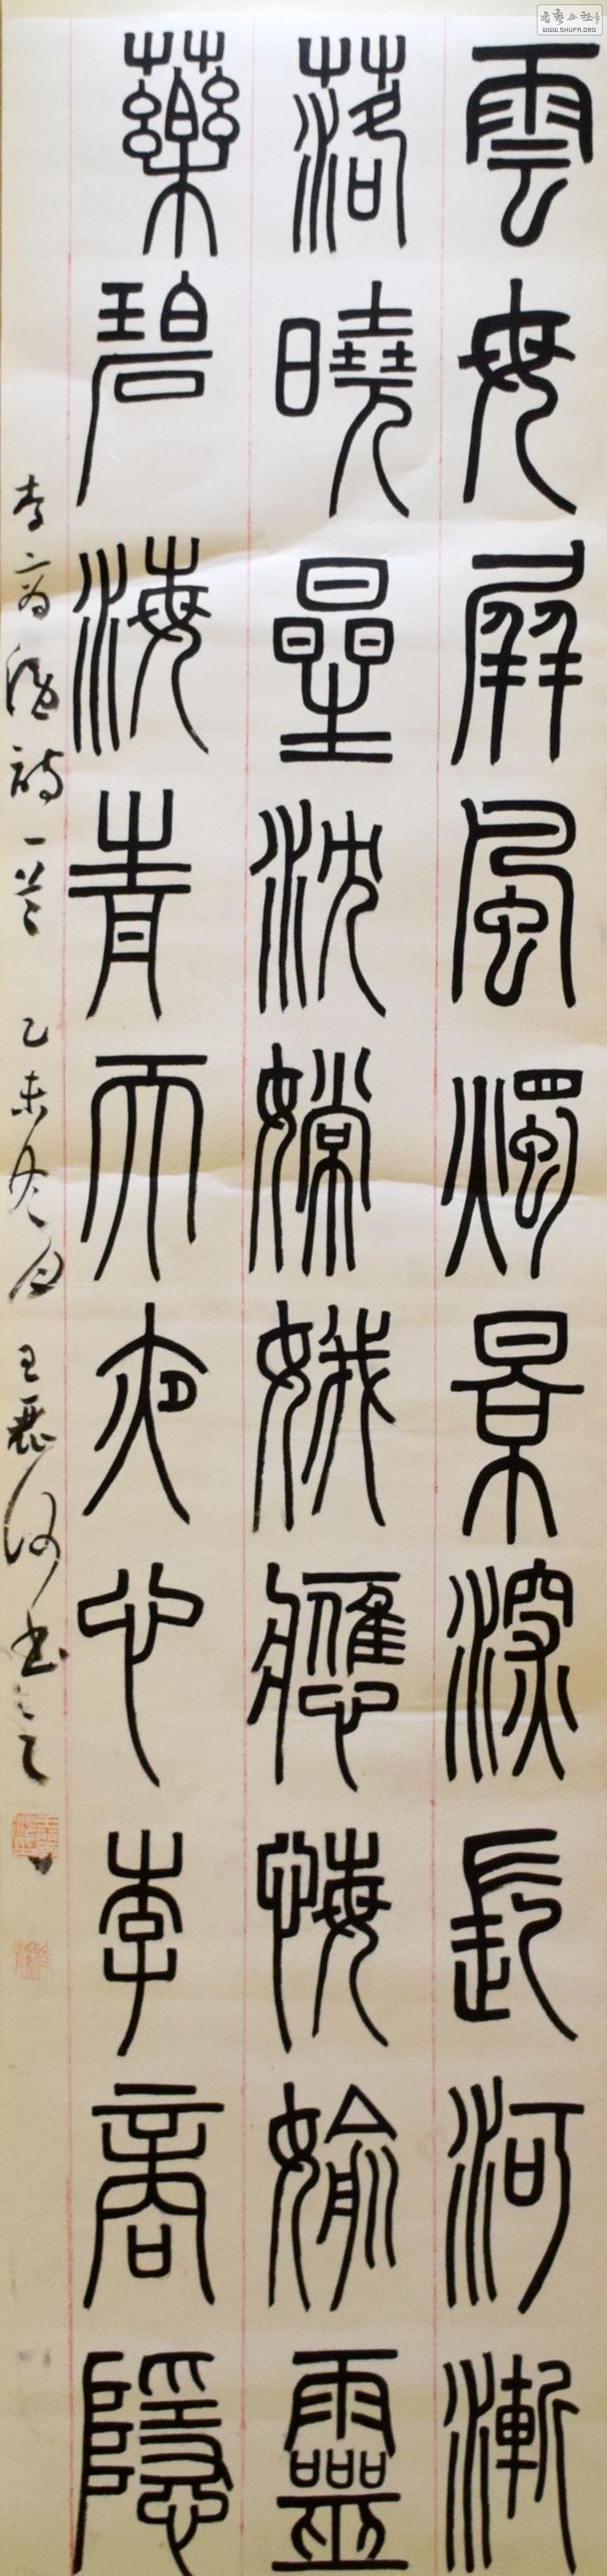 书艺公社
WWW.SHUFA.ORG
雲母屏風燭景深長河漸
落曉曐沈嫦娥應悔媮靈
藥碧海青天夜心李商隱
李商隱詩一首 乙未冬月 王 书之